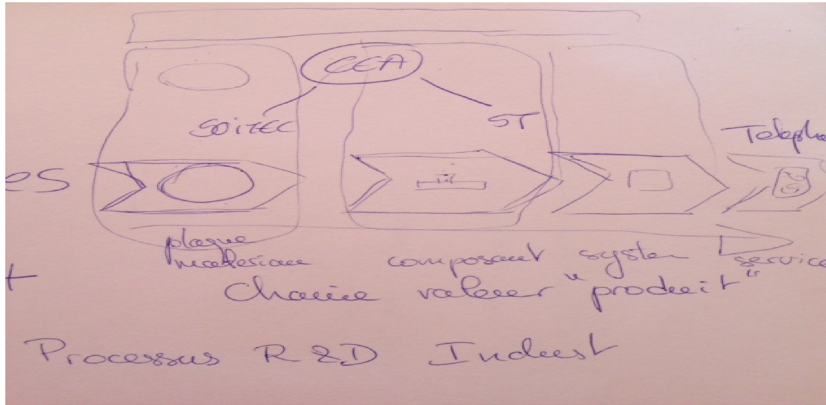 CEA
SOITEC ST
Teleph
es
plaque
materiau composant system service
+
Chaine valeur "produit"
Processus R&D Indust